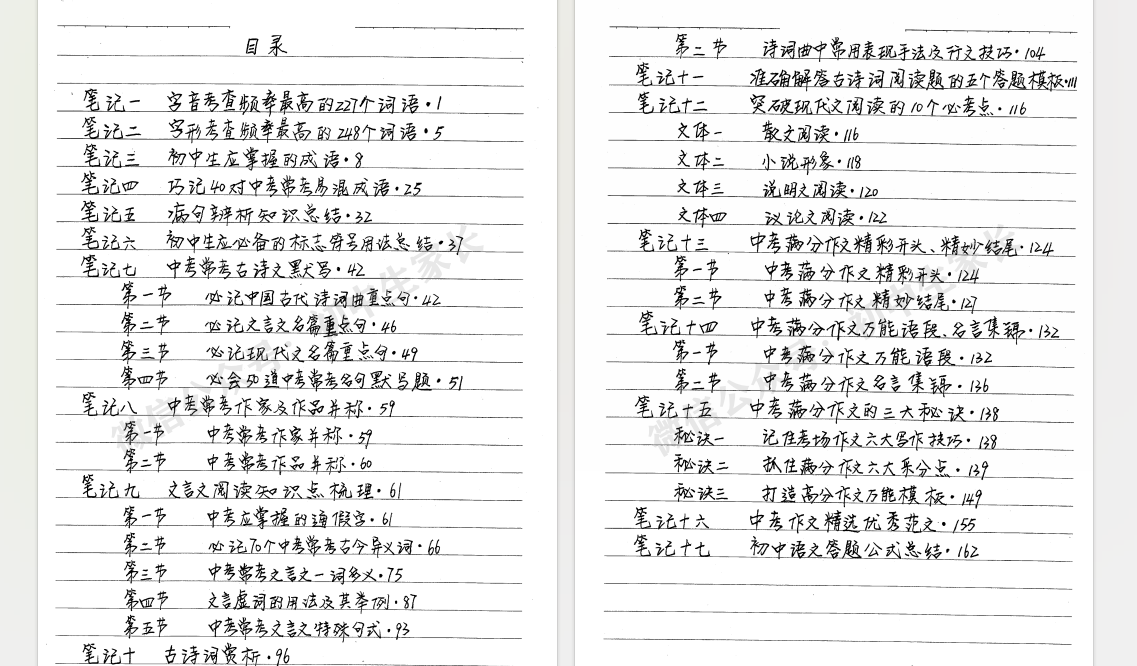 目录
笔记一 字音考查频率最高的227个词语·1
笔记二 字形考查频率最高的248个词语·5
笔记三 初中生应掌握的成语·8
笔记四 巧记40对中考常考易混成语·25
笔记五 病句辨析知识总结·32
笔记六 初中生应必备的标志符号用法总结·37
笔记七 中考常考古诗文默写·42
第一节 必记中国古代诗词曲重点句·42
第二节 必记文言文名篇重点句·46
第三节 必记现代文名篇重点句·49
第四节 必会50道中考常考名句默写题·51
笔记八 中考常考作家及作品并称·59
第一节 中考常考作家并称·59
第二节 中考常考作品并称·60
笔记九 文言文阅读知识点梳理·61
第一节 中考应掌握的通假字·61
第二节 必记70个中考常考古今异义词·66
第三节 中考常考文言文一词多义·75
第四节 文言虚词的用法及其举例·87
第五节 中考常考文言文特殊句式·93
笔记十 古诗词赏析·96
第二节 诗词曲中常用表现手法及行文技巧·104
笔记十一 准确解答古诗词阅读题的五个答题模板·111
笔记十二 突破现代文阅读的10个必考点·116
文体一 散文阅读·116
文体二 小说形象·118
文体三 说明文阅读·120
文体四 议论文阅读·122
笔记十三 中考满分作文精彩开头、精妙结尾·124
第一节 中考满分作文精彩开头·124
第二节 中考满分作文精妙结尾·127
笔记十四 中考满分作文万能语段、名言集锦·132
第一节 中考满分作文万能语段·132
第二节 中考满分作文名言集锦·136
笔记十五 中考满分作文的三大秘诀·138
秘诀一 记住考场作文六大写作技巧·138
秘诀二 抓住满分作文六大采分点·139
秘诀三 打造高分作文万能模板·149
笔记十六 中考作文精选优秀范文·155
笔记十七 初中语文答题公式总结·162